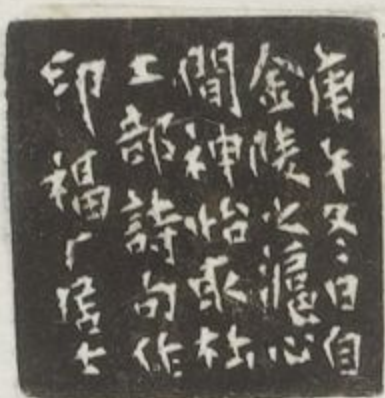 庚午冬日自
金陵之滬心
間神怡取杜
工部詩句作
印福厂居士